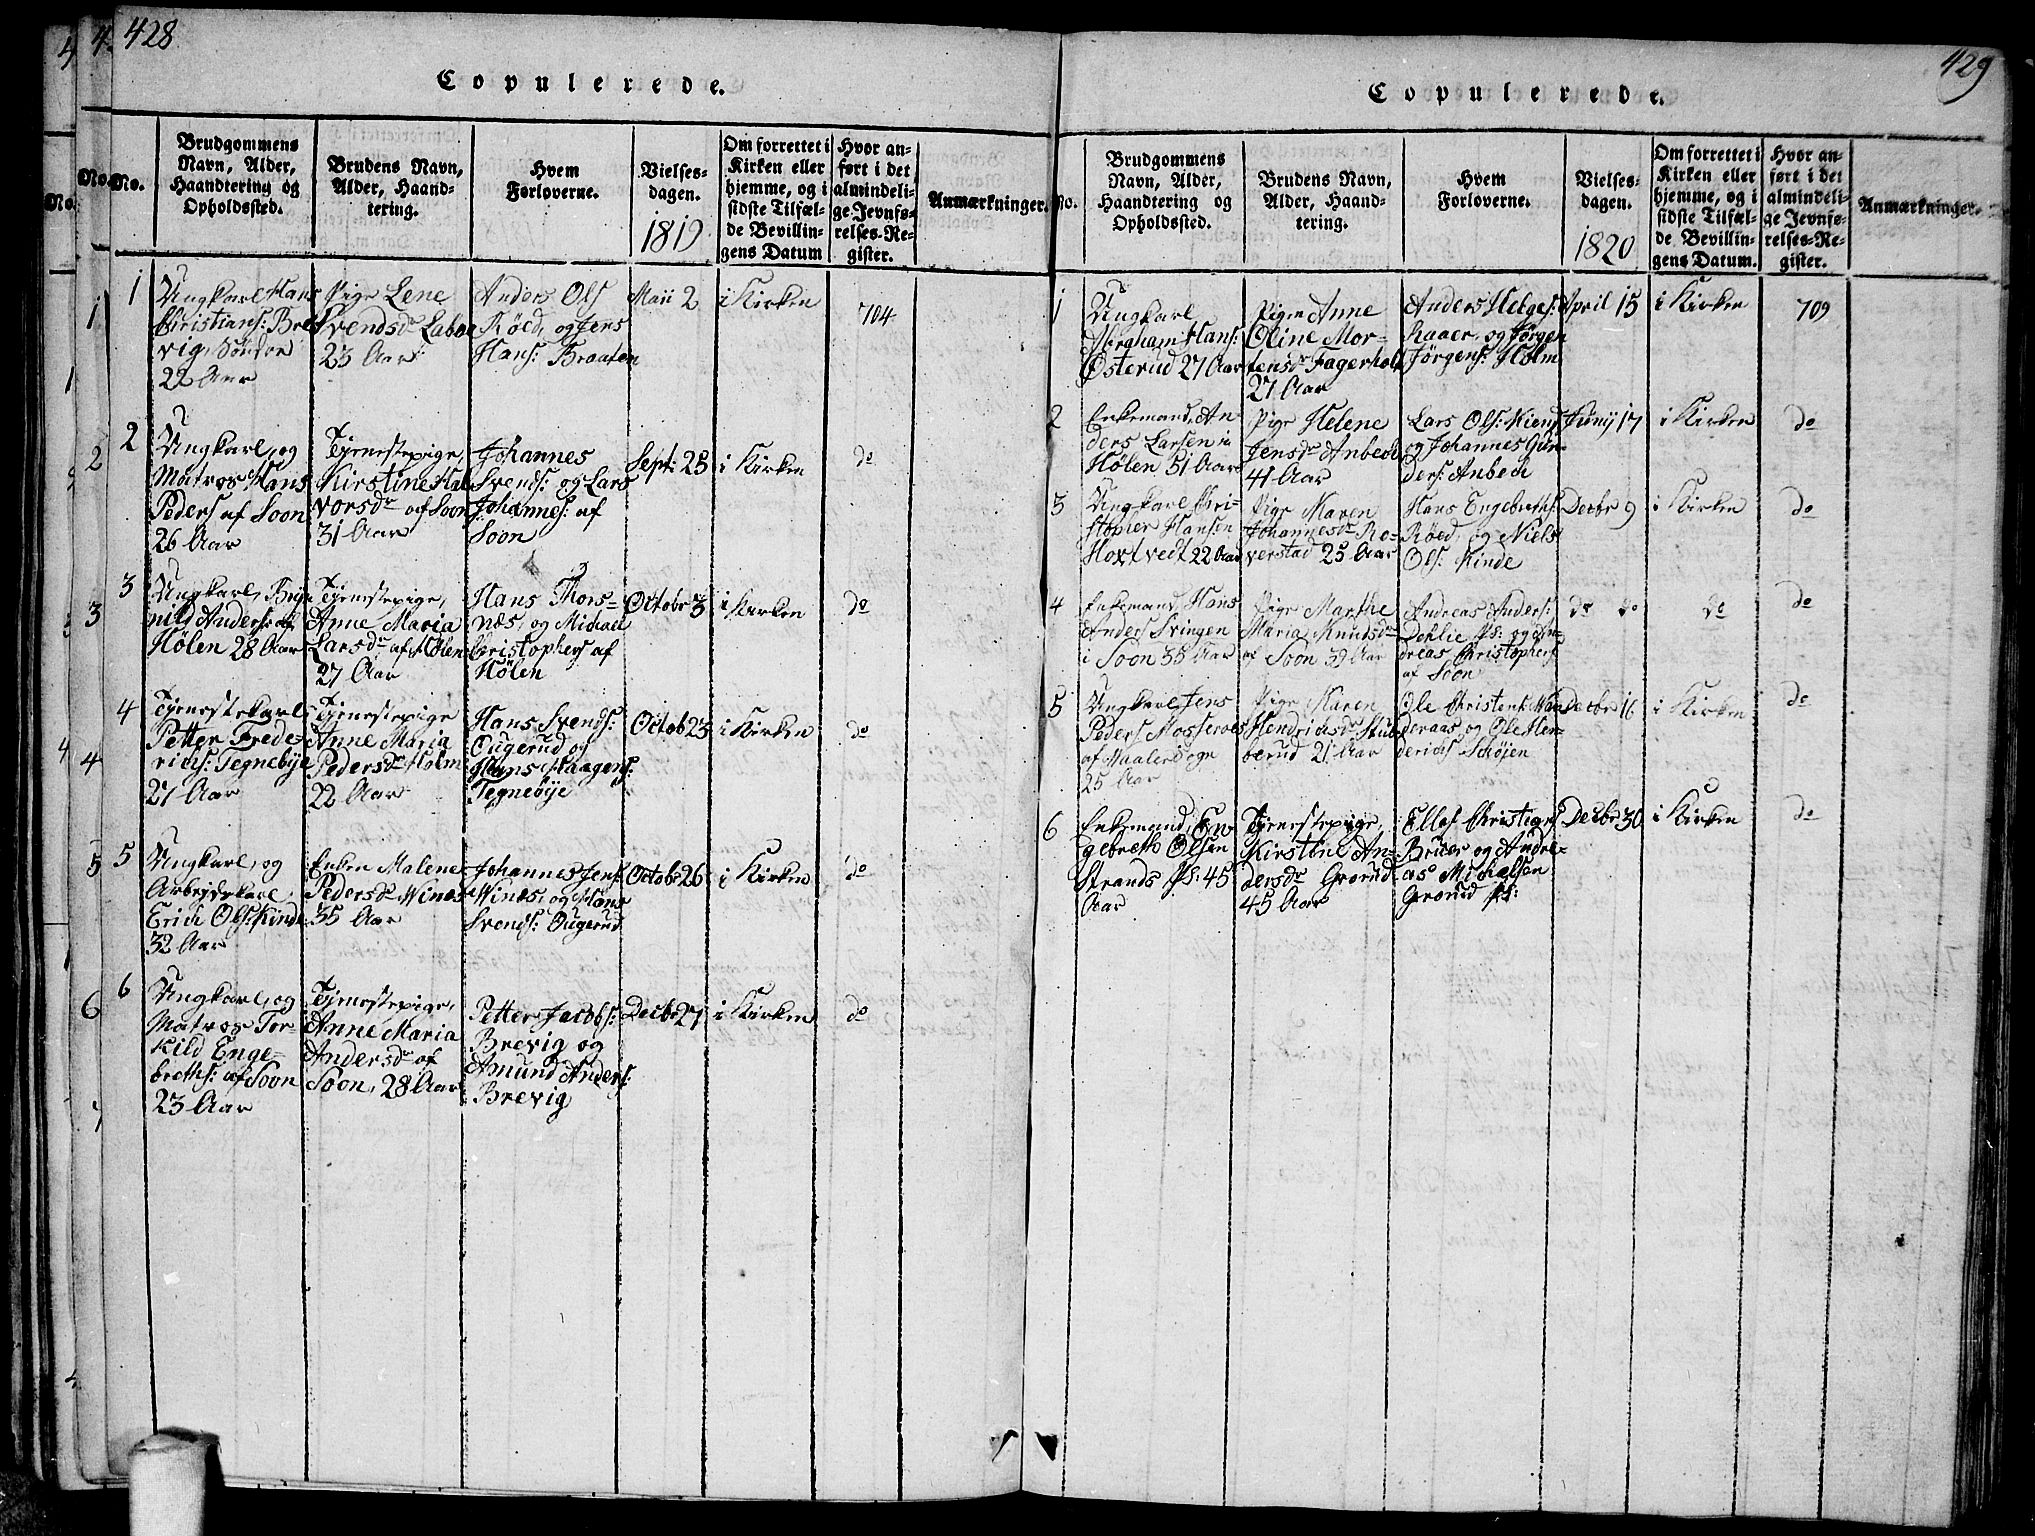 428
Copulerede.
No.
Brudgommens
Navn, Alder,
Haandtering og
Opholdssted.
Brudens Navn,
Alder, Haand-
tering.
Hvem
Forloverne.
Vielses-
dagen.
1819
Om forrettet i
Kirken eller
hjemme, og i
sidste Tilfæl-
de Bevillin-
gens Datum
Hvor an-
ført i det
almindeli-
ge Jevnfø-
relses-Re-
gister.
Anmærkninger.
1
Ungkarl Hans
Christians: Bre
vig, Søndre
22 Aar
Pige Lene
Svendsdr Laboe
23 Aar
Anders Ols
Röed, og Jens
Hans: Braaten
Maii 2
i Kirken
704
2
Ungkarl, og
Matros Hans
Peders af Soon
26 Aar
Tjenestepige,
Kirstine Hal
vorsdr af Soon
31 Aar
Johannes
Svends: og Lars
Johannes: af
Soon
Sept: 25
i Kirken
do
3
Ungkarl, Bryn
nild Anders: af
Hölen 28 Aar
Tjenestepige,
Anne Maria
Larsdr af Hölen
27 Aar
Hans Thors-
næs, og Michael
Christophers af
Hölen
Octobr 3
i Kirken
do
4
Tjenestekarl
Petter Frede-
richs: Tegnebye
27 Aar
Tjenestepige
Anne Maria
Pedersdr Holm
22 Aar
Hans Svends:
Ougerud og
Hans Haagens:
Tegneöye
Octob 23
i Kirken
do
5
Ungkarl, og
Arbejdskarl
Erich Ols: Kinde
32 Aar
Enken Malene
Pedersdr Winds
35 Aar
Johannes Jens
Winds, og Hans
Svends: Ougerud
Octobr 26
i Kirken
do
6
Ungkarl, og
Matros Tor-
kild Enge-
breths: af Soon
23 Aar
Tjenestepige,
Anne Maria
Andersdr af
Soon, 28 Aar
Petter Jacobs:
Brevig og
Amund Anders:
Brevig
Decbr 27
i Kirken
do
429
Copulerede.
No.
Brudgommens
Navn, Alder,
Haandtering og
Opholdssted.
Brudens Navn,
Alder, Haand-
tering.
Hvem
Forloverne.
Vielses-
dagen.
1820
Om forrettet i
Kirken eller
hjemme, og i
sidste Tilfæl-
de Bevillin-
gens Datum.
Hvor an-
ført i det
almindeli-
ge Jevnfø-
relses-Re-
gister.
Anmærkninger.
1
Ungkarl
Abraham Hans:
Österud 27 Aar
Pigen Anne
Oline Mor-
tensdr Fagerholt
27 Aar
Anders Helges:
Raaer, og Jörgen
Jörgens: Holm
April 15
i Kirken
709
2
Enkemand, An
ders Larsen in
Hölen 51 Aar
Pige Helene
Jensdr Anbech
41 Aar
Lars Ols: Kiens
og Johannes Gun
ders: Anbech
Juny 17
i Kirken
do
3
Ungkarl Chri-
stopher Hansen
Hoxtvedt 22 Aar
Pige Maren
Johannesdr Ro-
verstad 25 Aar
Hans Engebreths:
Röed, og Niels
Ols: Kinde
Decbr 9
i Kirken
do
4
Enkemand Hans
Anders Svingen
i Soon 35 Aar
Pige Marthe
Maria Knudsdr
af Soon 39 Aar
Andreas Anders:
Dehlie Ps: og An-
dreas Christophers
af Soon
do do
do
do
5
Ungkarl Jens
Peders Mosseroes
af Vaalersogn
25 Aar
Pige Karen
Hendrichsdr Stub
berud 21 Aar
Ole Christens
deraas, og Ole Hen
derichs Schöjen
Decbr 16
i Kirken
do
6
Enkemand, En
gebreth Olsen
Strands Ps: 45
Aar
Tjenestepige,
Kirstine An-
dersdr Grorud
45 Aar
Ellef Christians
Bruer og Andre-
as Michelsen
Grorud Ps:
Decbr 30
i Kirken
do